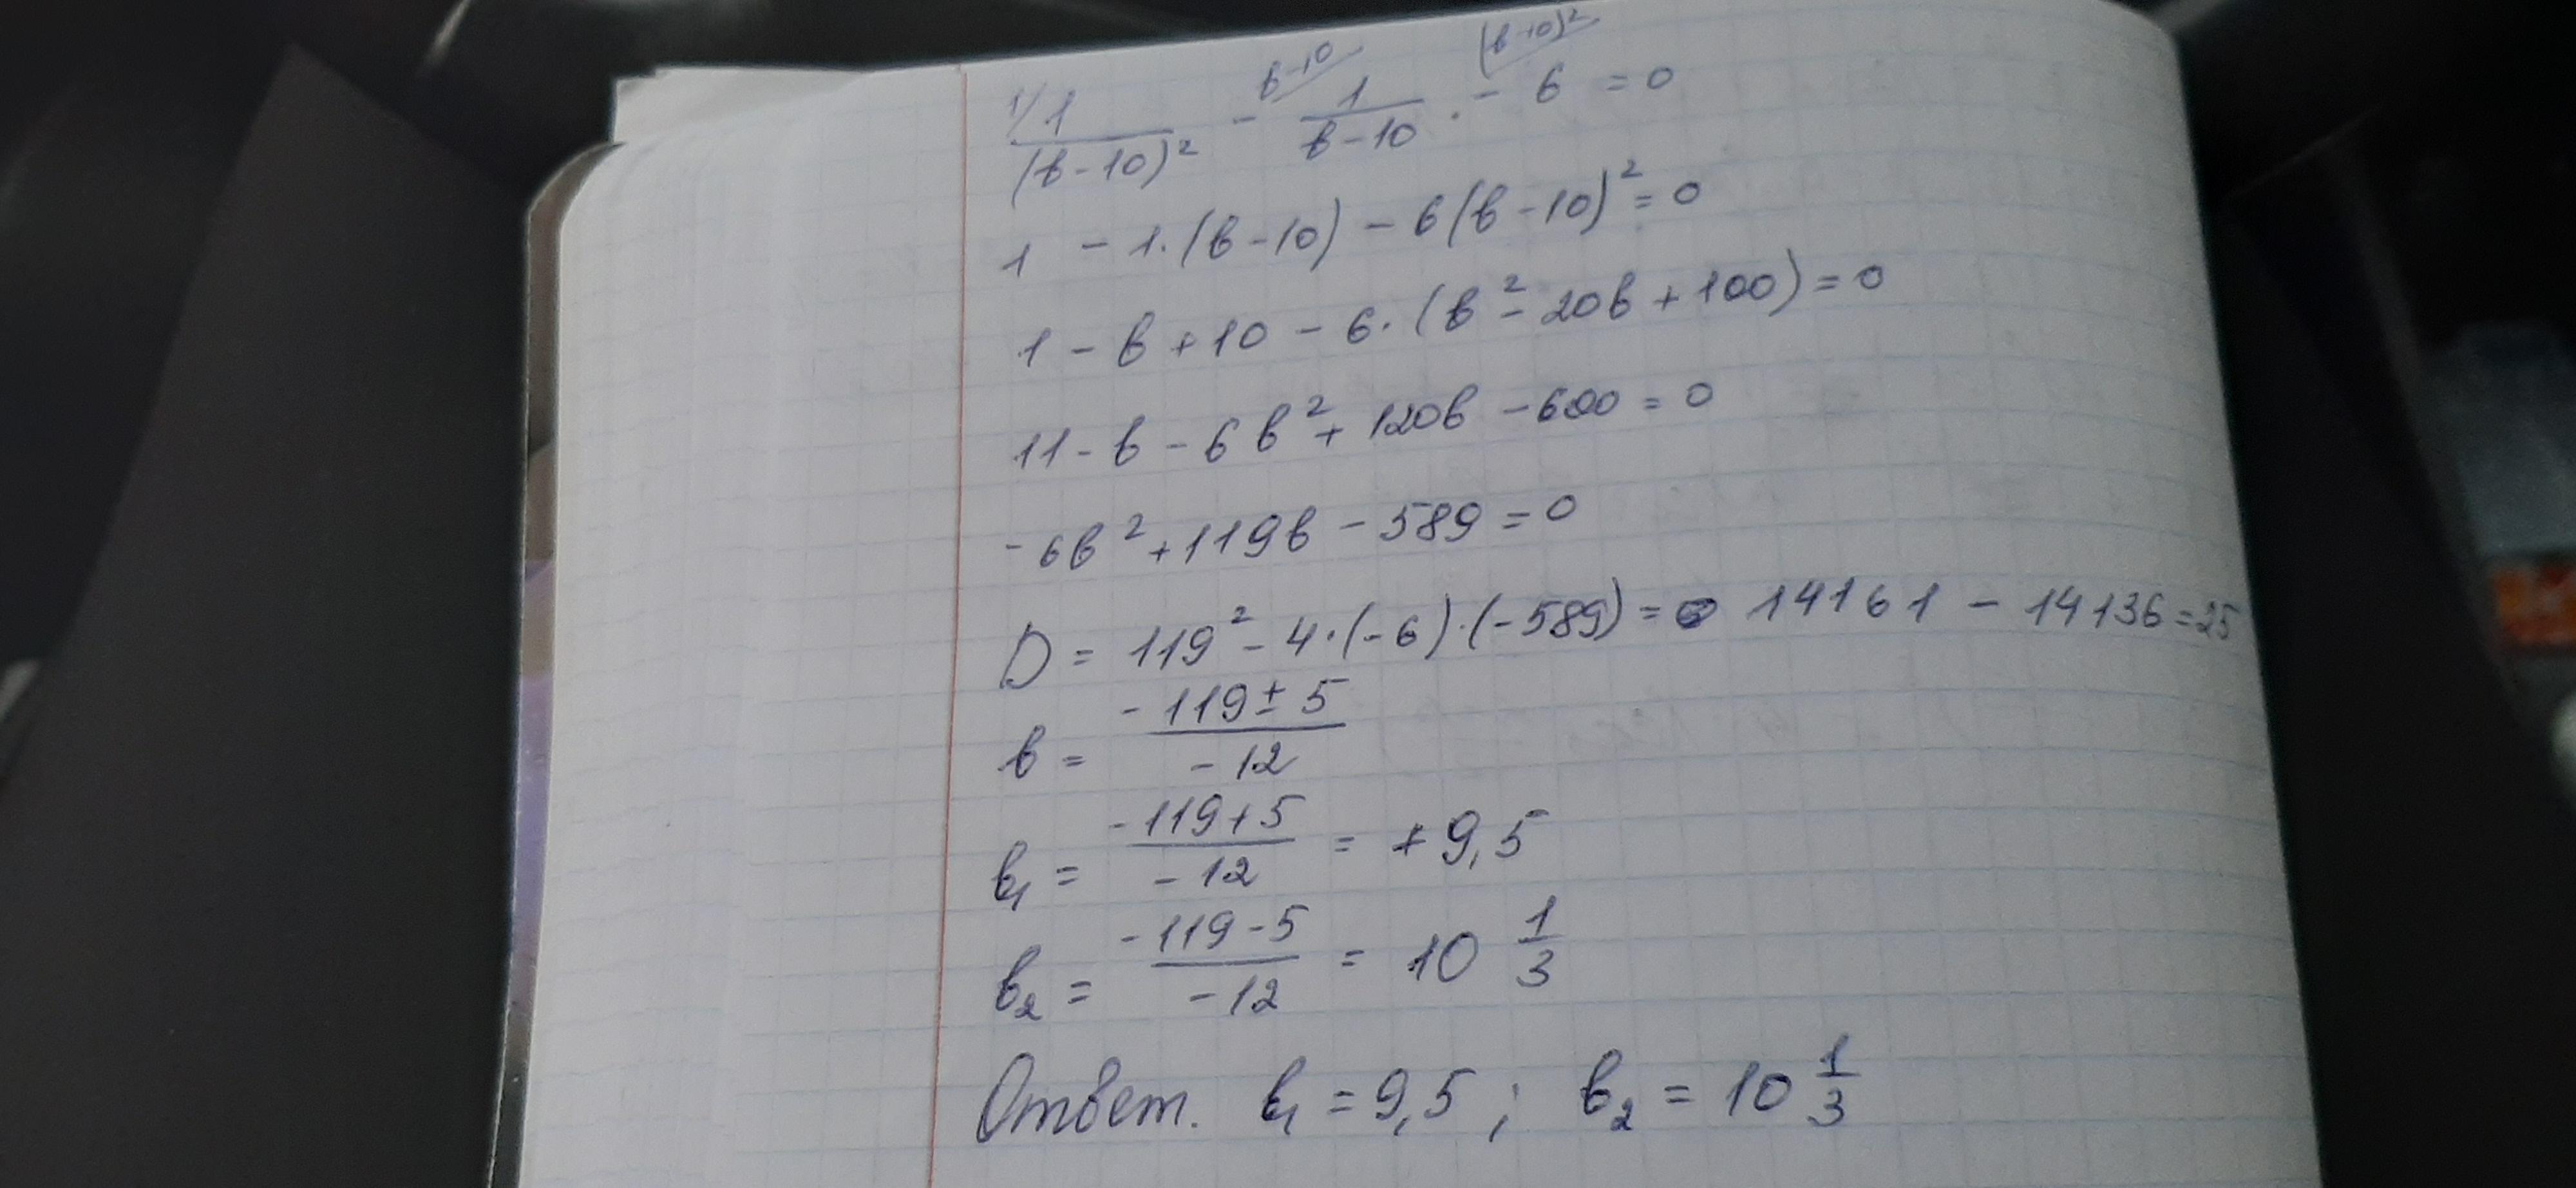 1/ 1/(в-10)² - 1/(в-10) · - 6 = 0
в-10 (в-10)²
1 - 1·(в-10) - 6(в-10)² = 0
1 - в + 10 - 6·(в² - 20в + 100) = 0
11 - в - 6в² + 120в - 600 = 0
-6в² + 119в - 589 = 0
D = 119² - 4·(-6)·(-589) = 14161 - 14136 = 25
в = (-119 ± 5)/(-12)
в₁ = (-119+5)/(-12) = +9,5
в₂ = (-119-5)/(-12) = 10 1/3
Ответ. в₁ = 9,5 ; в₂ = 10 1/3